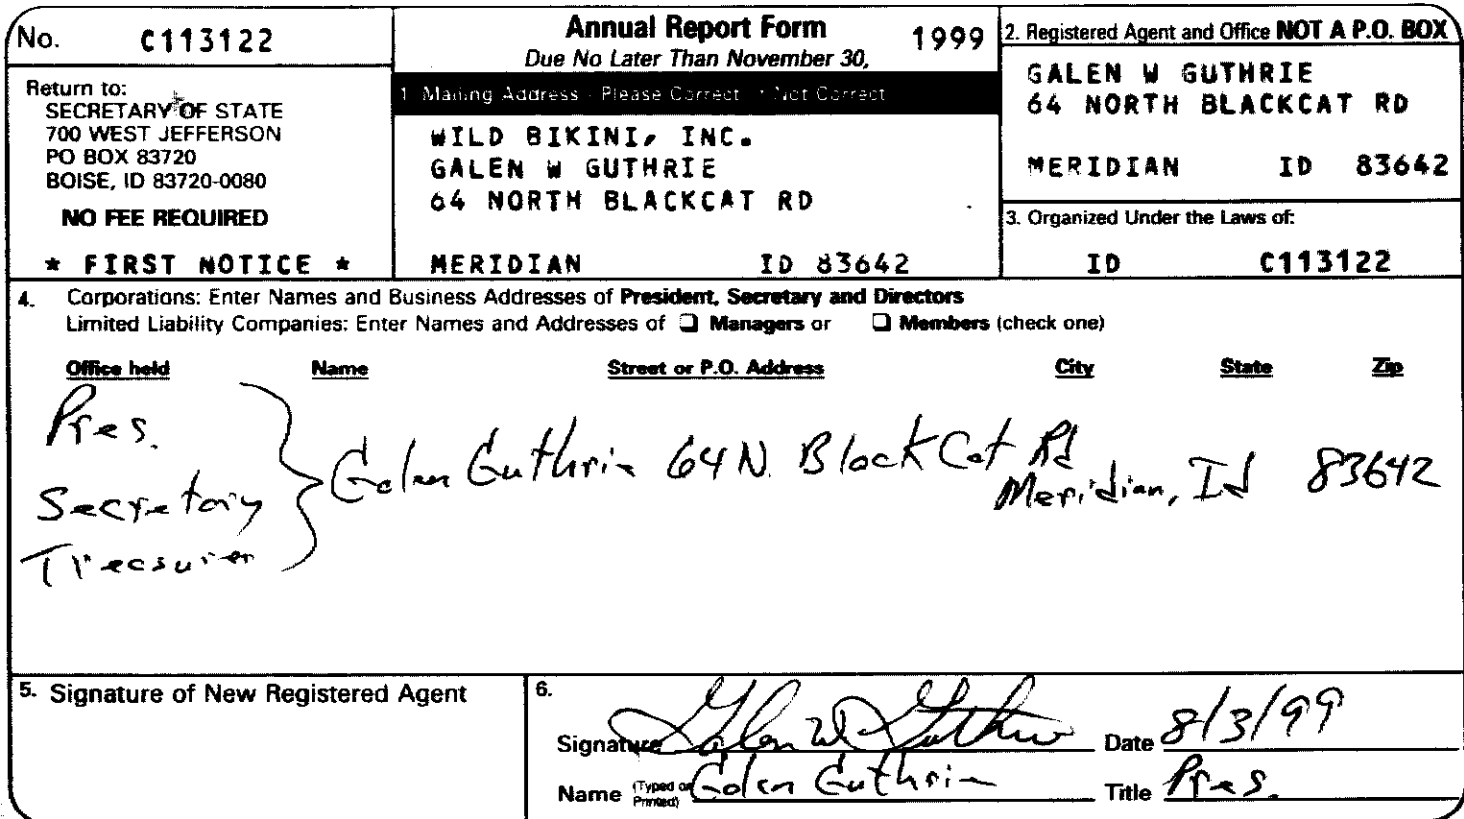 No. C113122
Return to:
SECRETARY OF STATE
700 WEST JEFFERSON
PO BOX 83720
BOISE, ID 83720-0080
NO FEE REQUIRED
* FIRST NOTICE *
Annual Report Form 1999
Due No Later Than November 30,
1. Mailing Address - Please Correct If Not Correct
WILD BIKINI, INC.
GALEN W GUTHRIE
64 NORTH BLACKCAT RD
MERIDIAN ID 83642
2. Registered Agent and Office NOT A P.O. BOX
GALEN W GUTHRIE
64 NORTH BLACKCAT RD
MERIDIAN ID 83642
3. Organized Under the Laws of:
ID C113122
4. Corporations: Enter Names and Business Addresses of President, Secretary and Directors
Limited Liability Companies: Enter Names and Addresses of ❑ Managers or ❑ Members (check one)
Office held Name Street or P.O. Address City State Zip
Pres.
Secretary
Treasurer
Galen Guthrie 64 N. Black Cat Rd
Meridian, Id 83642
5. Signature of New Registered Agent
6.
Signature Galen W Guthrie Date 8/3/99
Name (Typed or Printed) Galen Guthrie Title Pres.